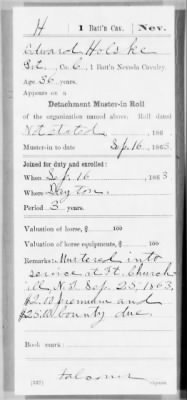 H | 1 Batt'n Cav. | Nev.
Edward Holske
Co. C, 1 Batt'n Nevada Cavalry.
Age 36 years.
Appears on a
Detachment Muster-in Roll
of the organization named above. Roll dated
Not stated, 186 .
Muster-in to date Sep. 16, 1863.
Joined for duty and enrolled:
When Sep. 16, 1863.
Where Dayton.
Period 3 years.
Valuation of horse, $ 100
Valuation of horse equipments, $ 100
Remarks: Mustered into
service at Ft. Church-
ill, N.T. Sep. 25, 1863,
$2.00 premium and
$25.00 bounty due.
Book mark:
Falconer
(337) Copyist.